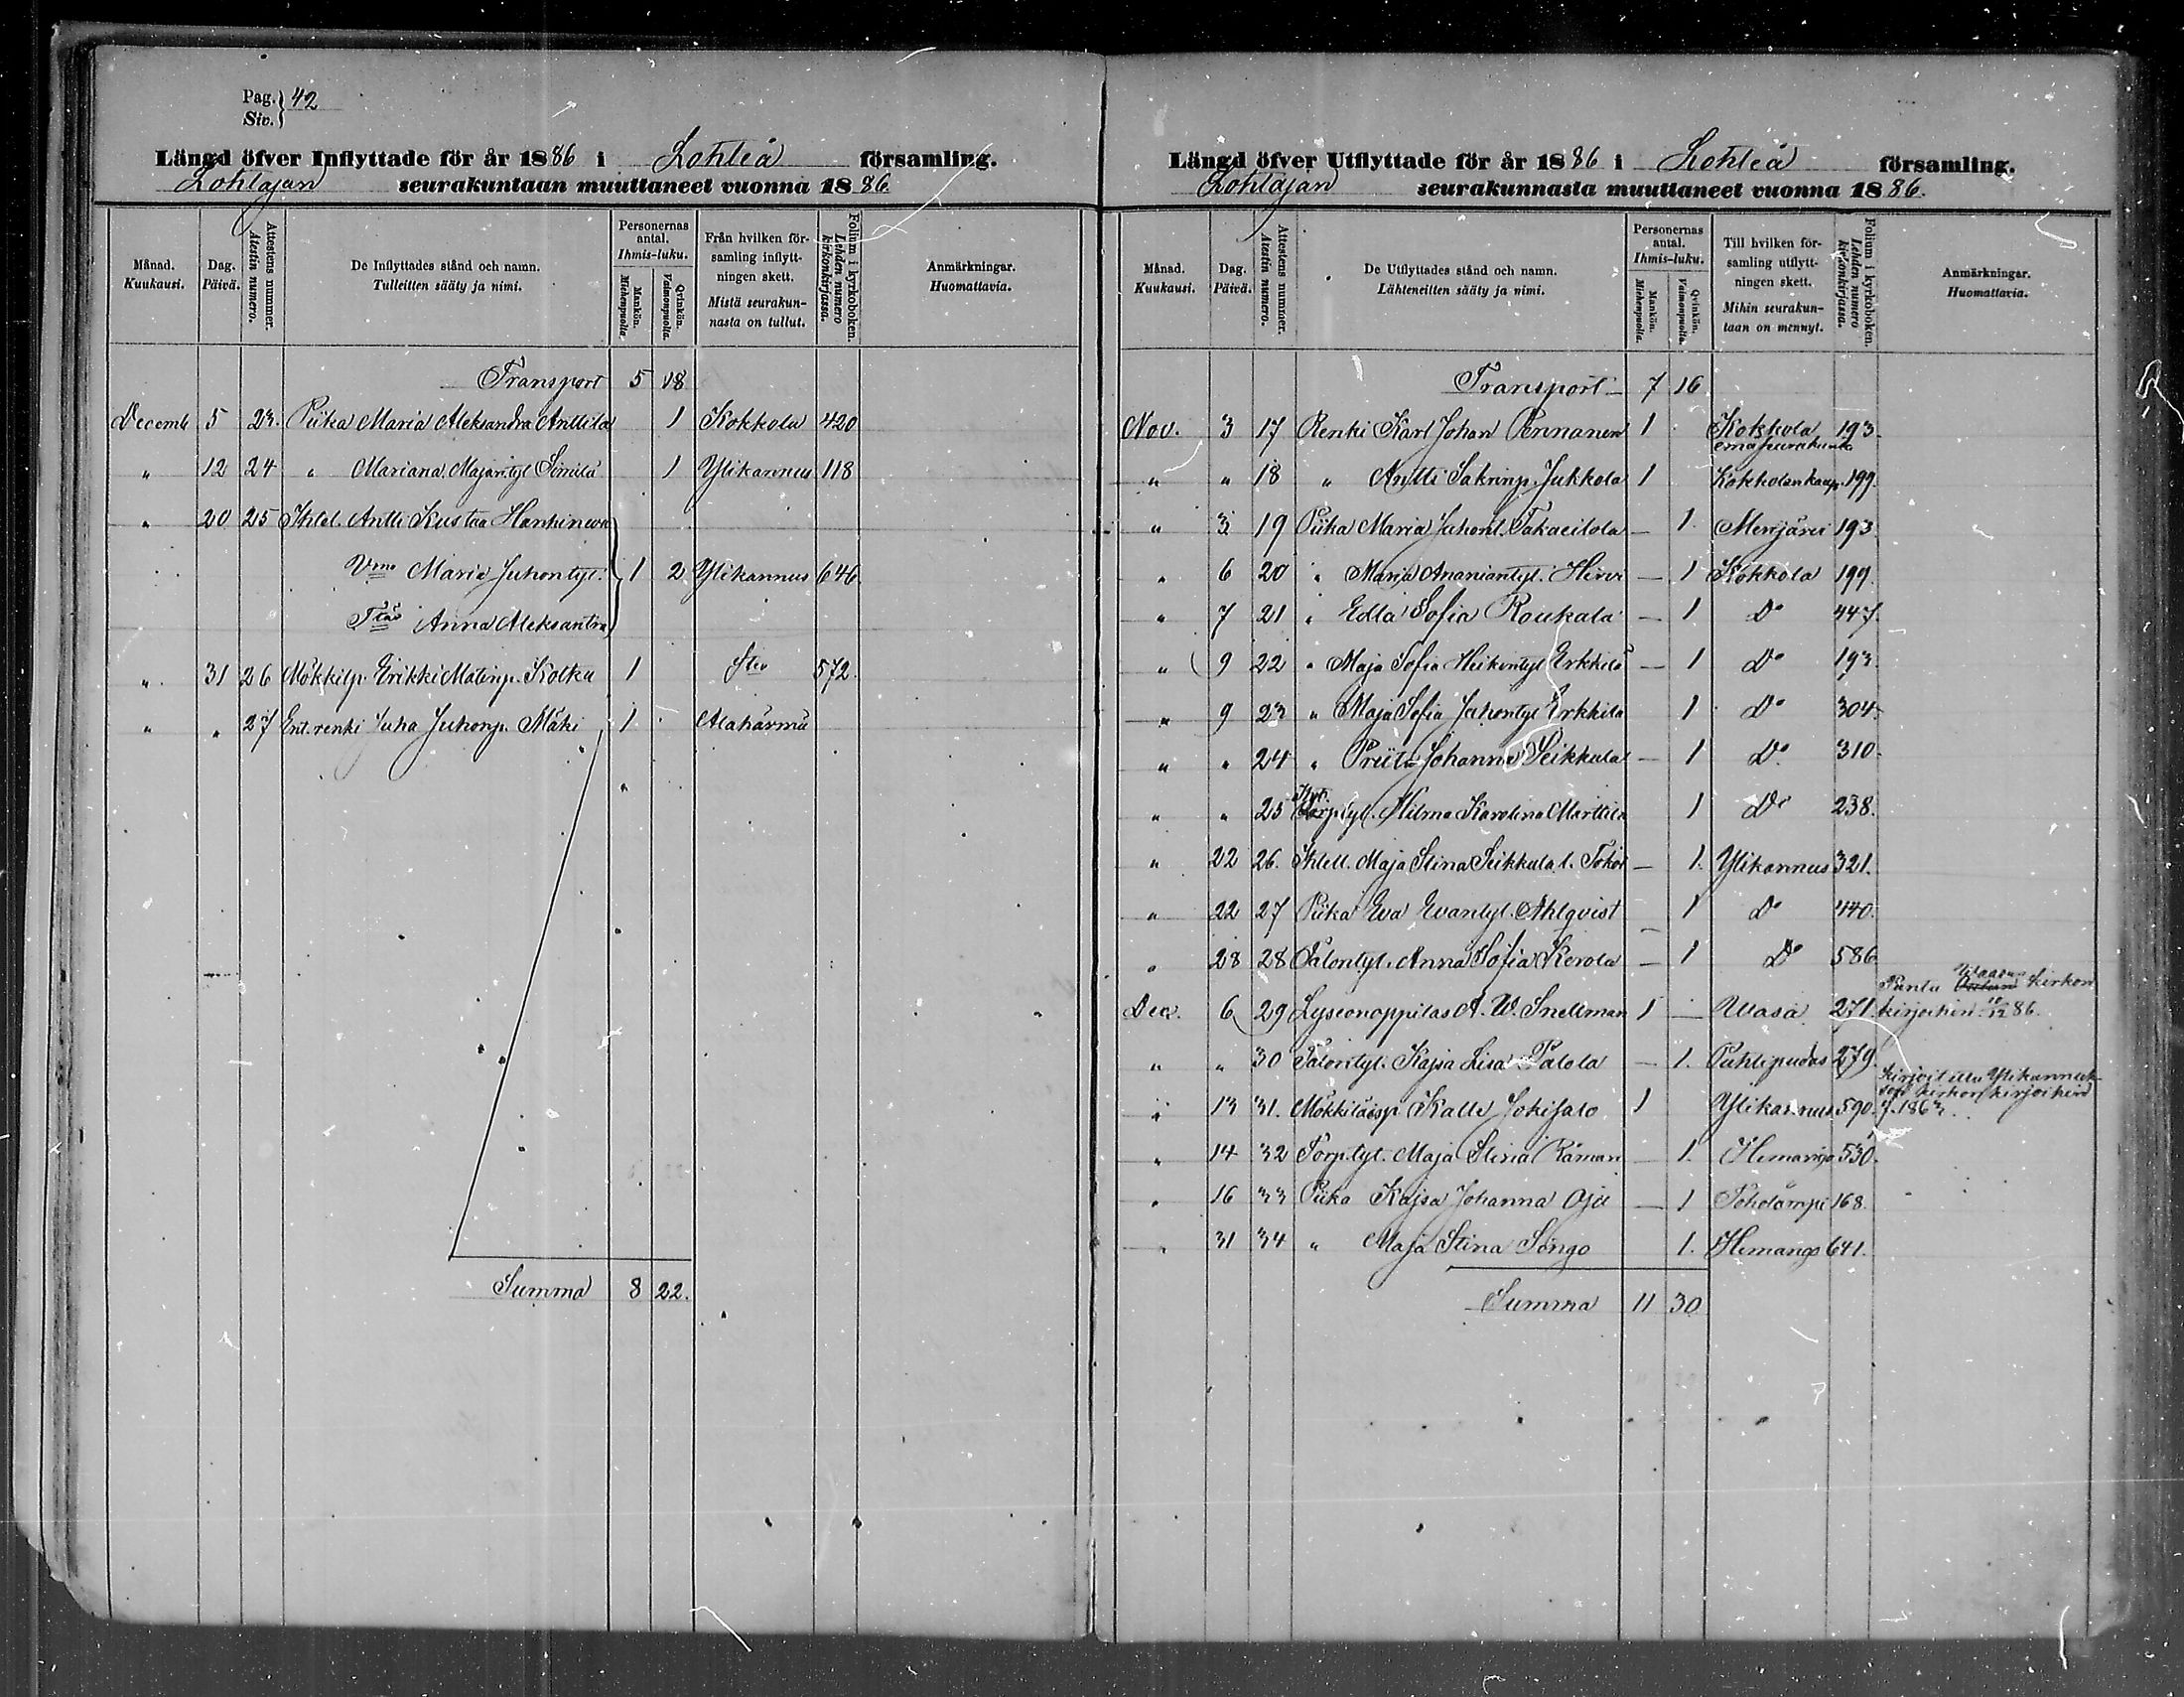 Pag. } 42
Siv. }
Längd öfver Inflyttade för år 1886 i Lohteå församling.
Lohtajan seurakuntaan muuttaneet vuonna 1886
Månad. Kuukausi. | Dag. Päivä. | Attestens nummer. Atestin numero. | De Inflyttades stånd och namn. Tulleitten sääty ja nimi. | Personernas antal. Ihmis-luku. Mankön. Miehenpuolta. Qvinkön. Vaimonpuolta. | Från hvilken församling inflyttningen skett. Mistä seurakunnasta on tullut. | Folium i kyrkoboken. Lehden numero kirkonkirjassa. | Anmärkningar. Huomattavia.
Transport 5 18
Decemb 5 23. Piika Maria Aleksandra Anttila 1 Kokkola 420
" 12 24 " Mariana Majantyt Similä 1 Ylikannus 118
" 20 25 Ithlel. Antti Kustaa Hankineva
Vmo Maria Juhontyt. 1 2 Ylikannus 646
Ttär Anna Aleksantra
" 31 26 Mökkilp. Erikki Matinp. Kotka 1 572.
" " 27 Ent. renki Juha Juhonp. Mäki 1 Alahärmä
Summa 8 22.
Längd öfver Utflyttade för år 1886 i Lohteå församling.
Lohtajan seurakunnasta muuttaneet vuonna 1886.
Månad. Kuukausi. | Dag. Päivä. | Attestens nummer. Atestin numero. | De Utflyttades stånd och namn. Lähteneitten sääty ja nimi. | Personernas antal. Ihmis-luku. Mankön. Miehenpuolta. Qvinkön. Vaimonpuolta. | Till hvilken församling utflyttningen skett. Mihin seurakuntaan on mennyt. | Folium i kyrkoboken. Lehden numero kirkonkirjassa. | Anmärkningar. Huomattavia.
Transport 7 16
Nov. 3 17 Renki Karl Johan Pennanen 1 Kokkola 193
emäseurakunta
" " 18 " Antti Sakrinp. Jukkola 1 Kokkolan kaup. 199.
" 3 19 Piika Maria Juhont. Takaeilola — 1 Merijärvi 193
" 6 20 " Marja Ananiantyt. Hirvi — 1 Kokkola 199.
" 7 21 " Edla Sofia Roukala — 1 Do 447.
" 9 22 " Maja Sofia Heikintyt Erkkilä — 1 Do 193.
" 9 23 " Maja Sofia Juhontyt Erkkila 1 Do 304.
" " 24 " Priita Johanna Seikkula — 1 Do 310.
" " 25 Torp.tyt. Hilma Karolina Marttila 1 Do 238.
" 22 26. Ithlell. Maja Stina Seikkula l. Tokoi — 1. Ylikannus 321.
" 22 27 Piika Eva Evantyt. Ahlqvist 1 Do 440.
" 28 28 Talontyt. Anna Sofia Kerola — 1 Do 586
Pantu Waasan kirkon
Dec. 6 29 Lyseonoppilas A. W. Snellman 1 — Waasa 271. kirjoihin 10/12 86.
" " 30 Talontyt. Kajsa Lisa Palola — 1. Pattipudas 279.
Kirjoitettu Ylikannuk-
sen kirkon kirjoihin
" 13 31. Mökkiläisp Kalle Jokisalo 1 Ylikannus 590. f. 1863.
" 14 32 Torp.tyt. Maja Stina Räman — 1. Himanga 530.
" 16 33 Piika Kajsa Johanna Oja — 1 Toholampi 168.
" 31 34 " Maja Stina Songo 1. Himanga 641.
Summa 11 30